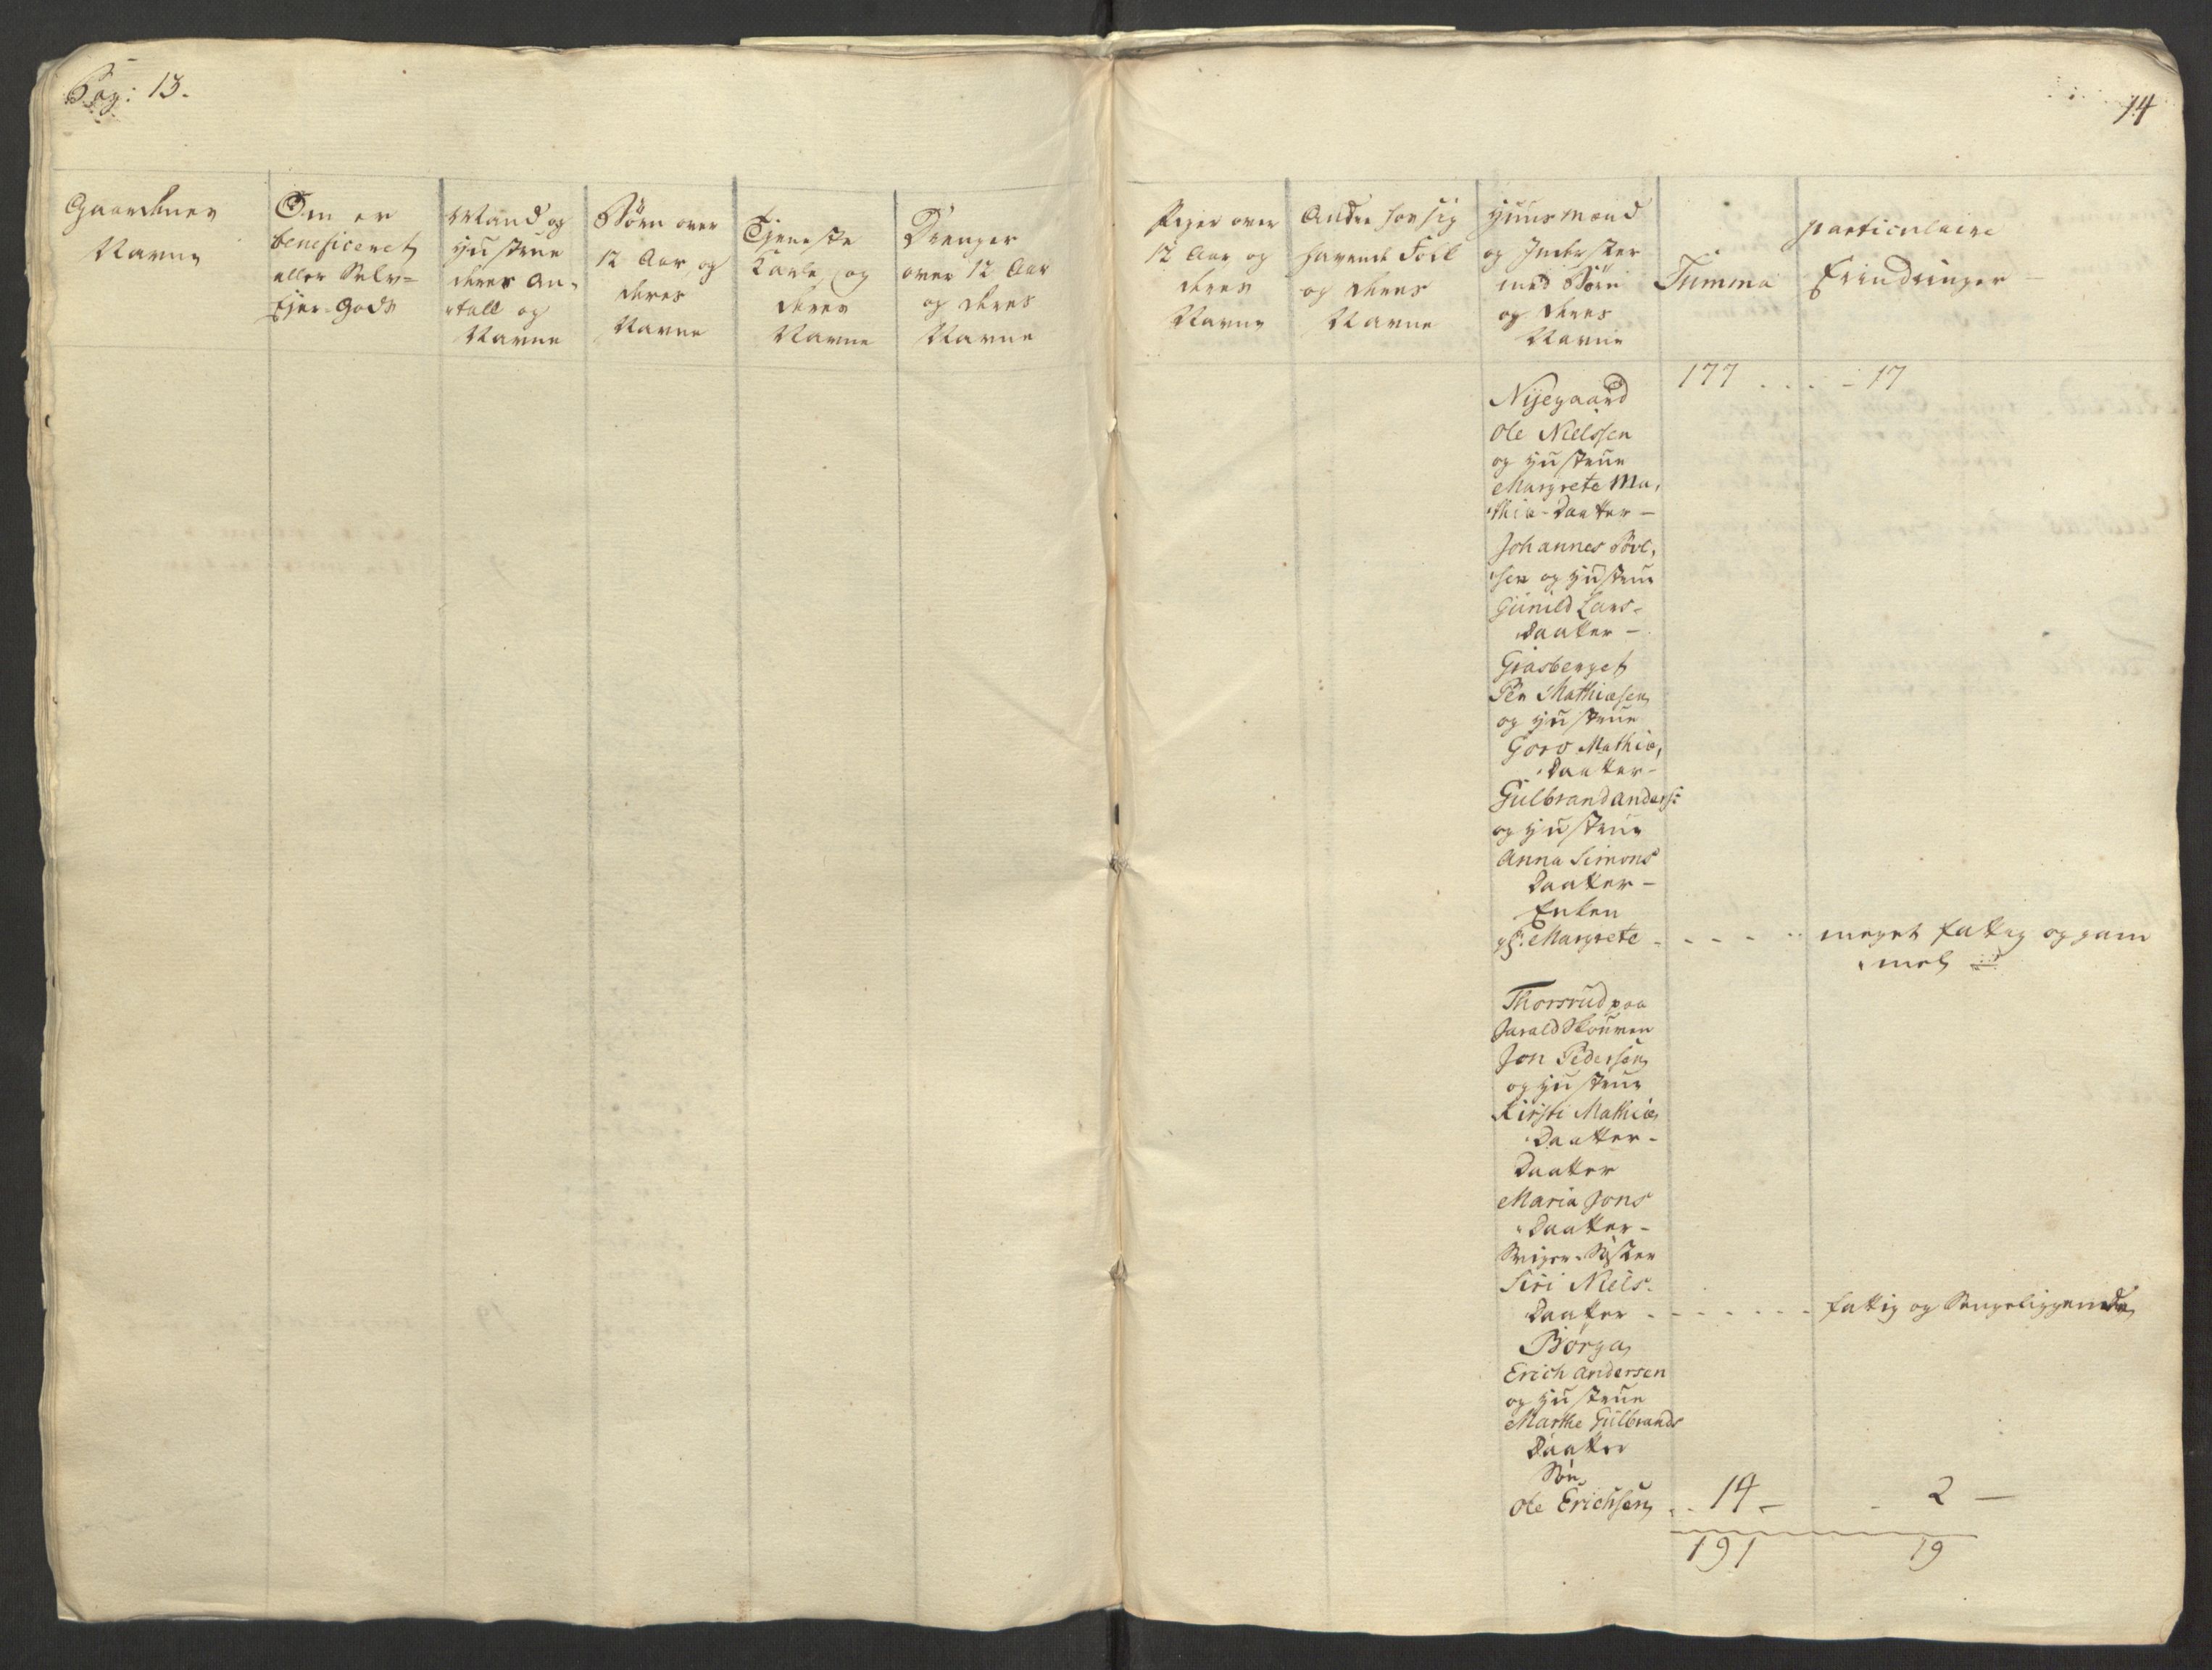 Pag: 13.
Gaardenes
Navne
Om er
beneficeret
eller Selv=
Ejer-Gods
Mand og
Hustrue
deres An-
tall og
Navne
Børn over
12 Aar og
deres
Navne
Tjeneste
Karle og
deres
Navne
Drenger
over 12 Aar
og deres
Navne
14
Piger over
12 Aar og
deres
Navne
Andre for sig
havende Folk
og deres
Navne
Huusmænd
og Inderster
med Børn
og deres
Navne
Summa
particulaire
Erindringer
177 . . . - 17
Nÿegaard
Ole Nielssen
og Hustrue
Margrete Ma-
thiæ-Daatter -
Johannes Povl-
sen og Hustrue
Gunild Lars-
Daatter -
Giasberget
Per Mathiæsen
og Hustrue
Goro Mathiæ-
Daatter-
Gulbrand Anders:
og Hustrue
Anna Simons
Daatter -
Enken
Margrete - - - - - meget fattig og gam
mel
Thorsrud paa
Harald Skouven
Jon Pedersen
og Hustrue
Kirsti Mathiæ
Daatter-
Daatter
Maria Jons
Daatter-
Sviger-Søster
Siri Niels-
Daatter - - - - - - fattig og Sengeliggende
Børga
Erich Andersen
og Hustrue
Marthe Gulbrands
Daatter
Søn
Ole Erichsen - - 14 - - 2 -
191 19